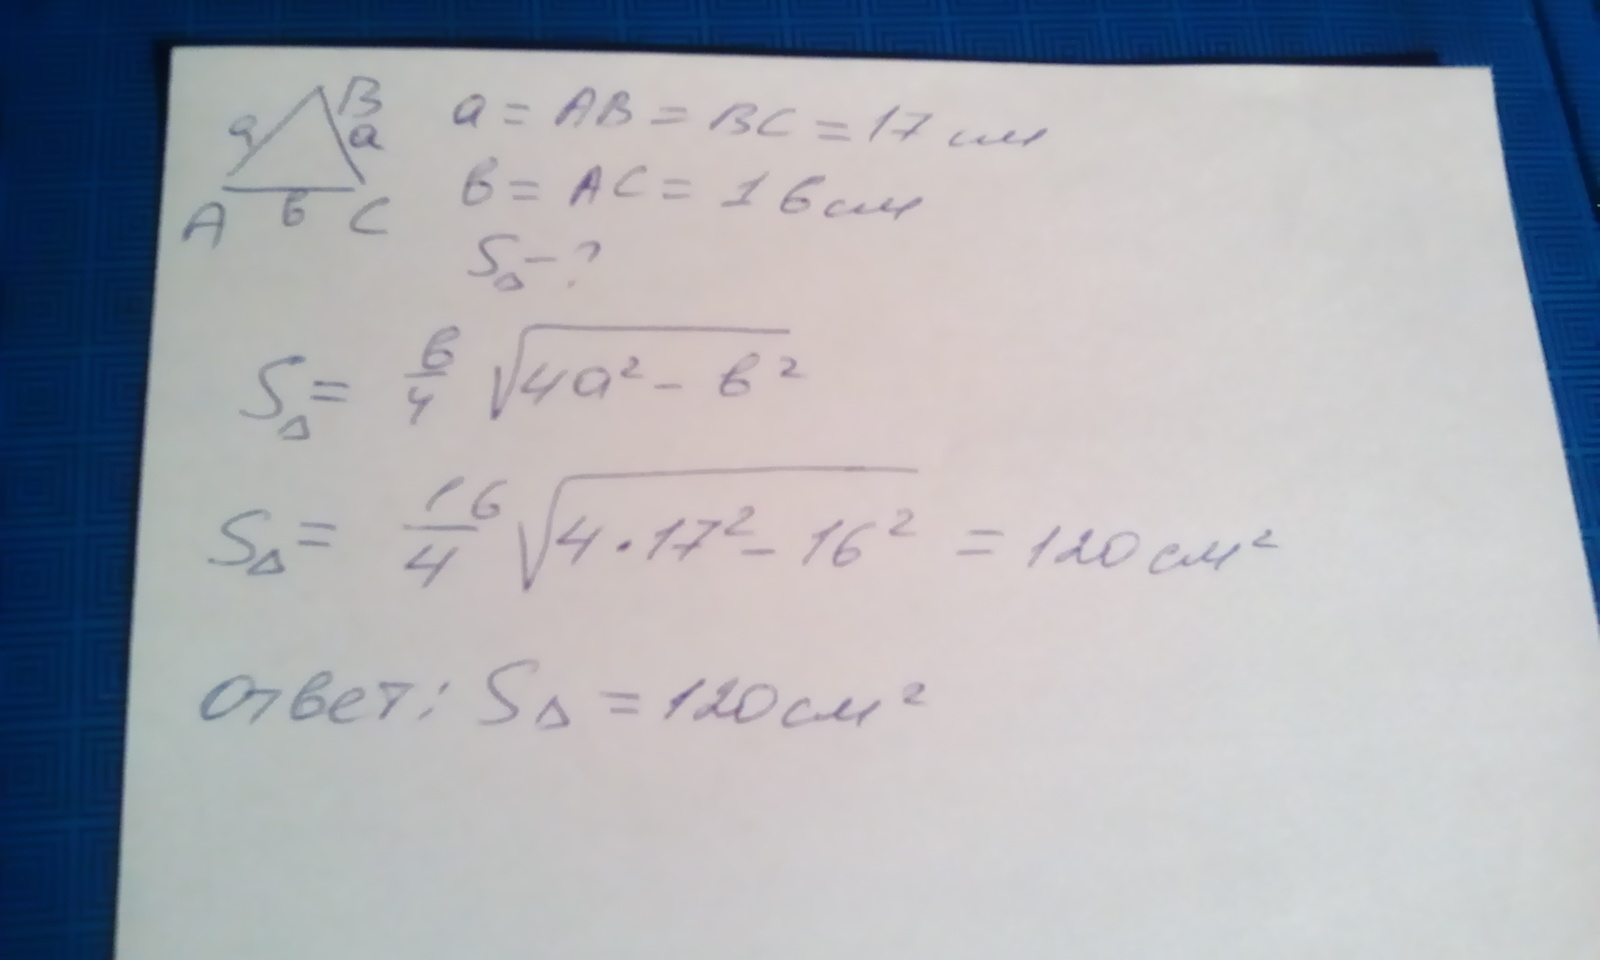 B a = AB = BC = 17 см
a a
в = AC = 16 см
A в C
S△ - ?
S△ = в/4 √(4a² - в²)
S△ = 16/4 √(4·17² - 16²) = 120 см²
Ответ: S△ = 120 см²